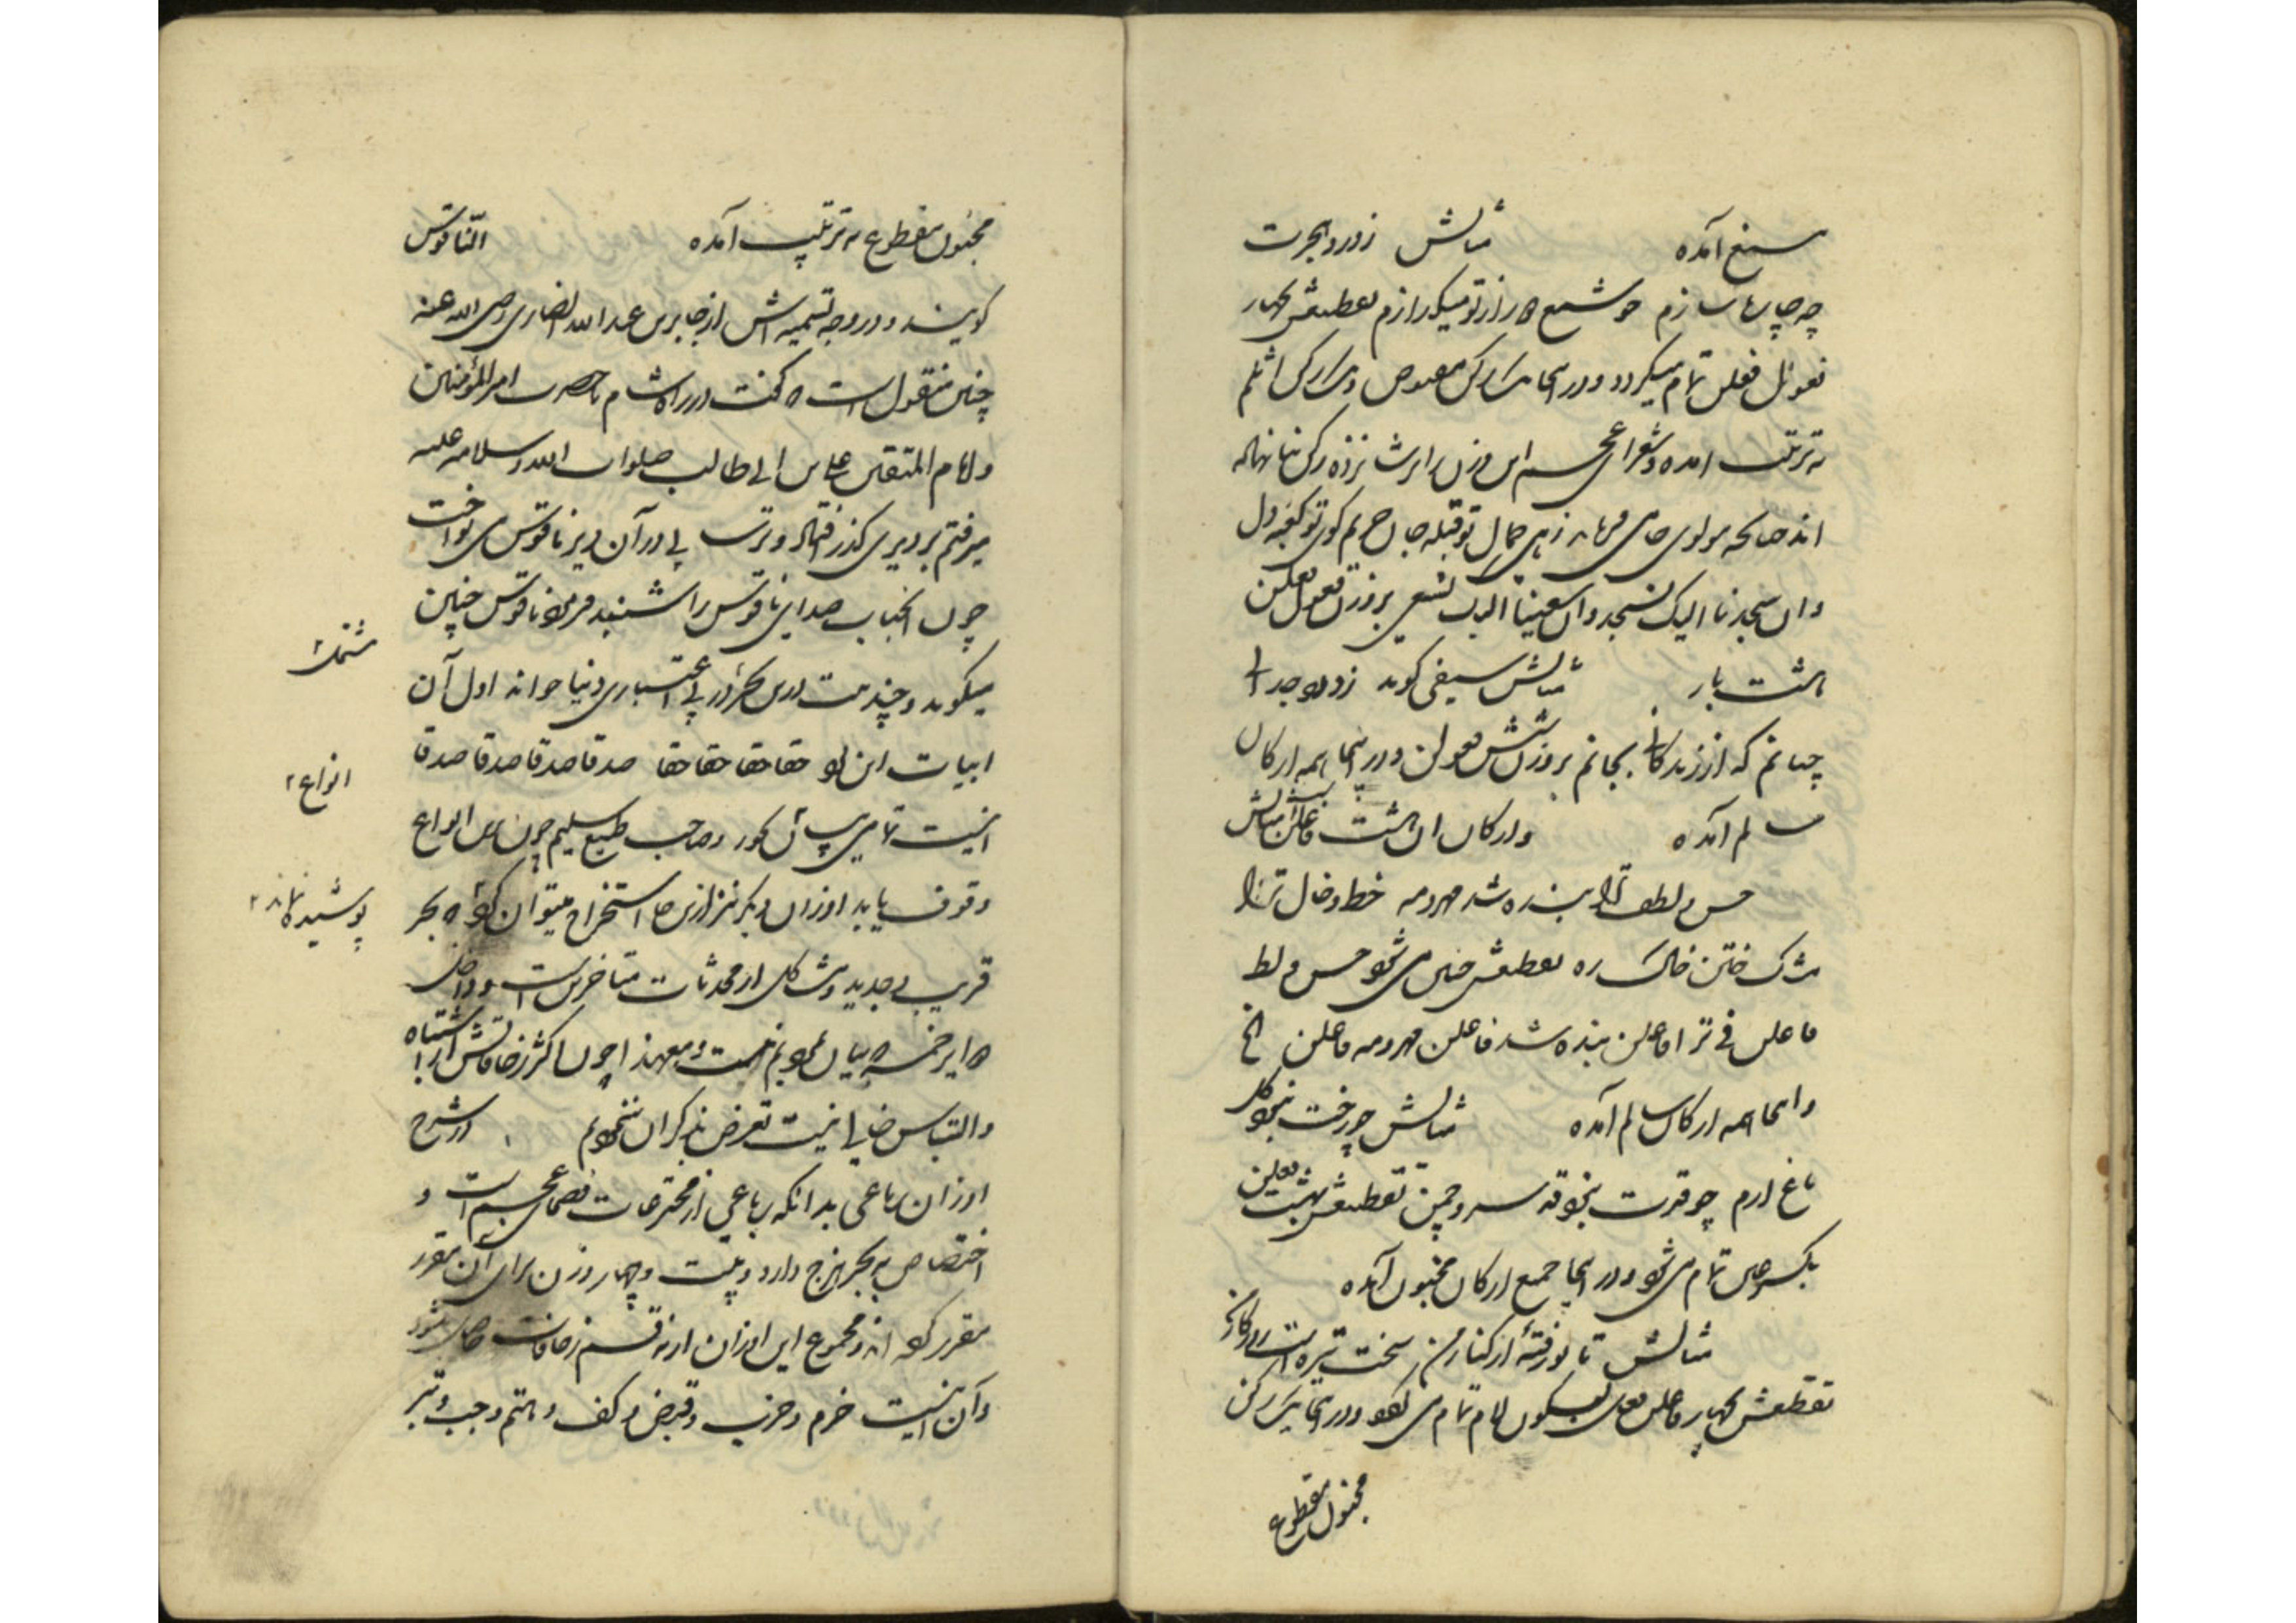 مسبغ آمده مثالش ز درد هجرت
چه چاره سازم چو شمع از تو میگدازم تقطیعش چهار
فعول فعلن تمام میگردد و در اینجا یک رکن مقبوض و یک رکن اثلم
به ترتیب آمده و شعرای عجم این وزن را بر شانزده رکن بنا نهاده
اند چنانکه مولوی جامی فرماید زهی جمال تو قبله جان حریم کوی تو کعبه دل
وان سجدنا الیک نسجد وان سعینا الیک نسعی بر وزن فعول فعلن
هشت بار مثالش سیفی گوید ز درد جدائی
چنانم که از زندگانی بجانم بر وزن هشت فعولن و در اینجا همه ارکان
سالم آمده و ارکان آن هشت فاعلن است مثالش
حسن و لطف ترا بنده شد مهر و مه خط و خال ترا
مشک ختن خاک ره تقطیعش چنین می شود حسن و لط
فاعلن فی ترا فاعلن بنده شد فاعلن مهر و مه فاعلن الخ
و اینجا همه ارکان سالم آمده مثالش چو رخت نبود گل
باغ ارم چو قدت نبود قد سرو چمن تقطیعش بهشت فعلن
بکسر عین تمام می شود و در اینجا جمیع ارکان مخبون آمده
مثالش تا تو رفتهٔ از کنار من سخت تیره است روزگار من
تقطیعش بچهار فاعلن فعل بسکون لام تمام می شود و در اینجا یک رکن
مخبول مقطوع
مخبول مقطوع به ترتیب آمده الناقوس
گویند و در وجه تسمیه اش از جابر بن عبد الله انصاری رضی الله عنه
چنین منقول است که گفت در راه شام با حضرت امیر المؤمنین
و امام المتقین علی بن ابی طالب صلوات الله و سلامه علیه
میرفتم بر دیری گذر افتاد و ترسایی در آن دیر ناقوس می نواخت
چون آنجناب صدای ناقوس را شنید فرمود ناقوس چنین
میگوید و چند بیت درین بحر در بی اعتباری دنیا خواند اول آن
ابیات این بود حقا حقا حقا حقا صدقا صدقا صدقا صدقا
اینست تمامی بیان بحور و صاحب طبع سلیم چون باین انواع
وقوف یابد اوزان دیگر نیز ازینها استخراج میتوان کرد که بحر
قریب و جدید و مشاکل از محدثات متأخرین است و داخل
دوایر خمسه که بیان نمودیم نیست و معهذا چون اکثر زحافاتش از اشتباه
و التباس خالی نیست تعرض بذکر آن ننمودیم در شرح
اوزان رباعی بدانکه رباعی از مخترعات فصحای عجم است و
اختصاص به بحر هزج دارد و بیست و چهار وزن برای آن مقرر
مقرر کرده اند و مجموع این اوزان از نه قسم زحافات حاصل شود
و آن اینست خرم و خرب و قبض و کف و هتم و جب و بتر
مثمن
انواع
پوشیده نماند